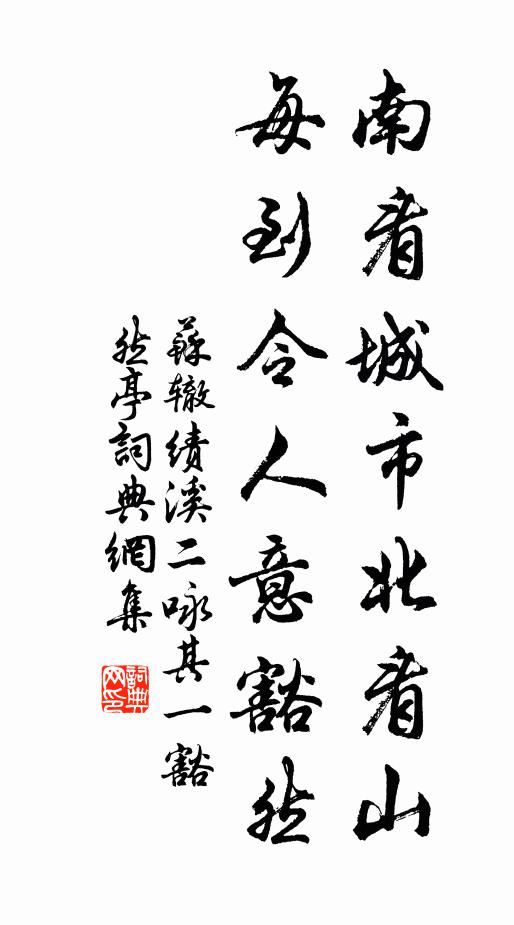 南看城市北看山
每到令人意豁然
蘇辙绩溪二咏其一豁
然亭詞典網集
詞典网印